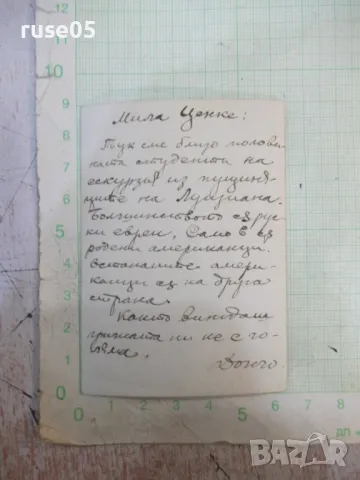 ruse05
Мила Ценке:
Тук сме близо полови-
ната студенти на
екскурзия из пущиня-
ците на Луизиана.
Болшинството са рус-
ки евреи. Само 6 са
родени американци.
Останалите амери-
канци са на друга
страна.
Както виждаш
грижата ни не е го-
ляма.
bazar
БАЗАР